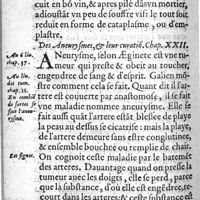 cuit en bō vin, & apres pilé dās vn mortier,
adioustāt vn peu de souffre vif: le tout soit
reduit en forme de cataplasme, ou d'em-
plastre.
Des Aneurysmes, & leur curatiō. Chap. XXII.
Au 6 liu.
chap. 37.
ANeurysme, selon Æginete est vne tu-
meur qui preste & obeit au toucher,
engendree de sang & d'esprit. Galien mō-
Au liu.
des tum.
chap. 11.
stre comment cela se fait. Quant l'artere
est ouuerte par anastomose, il se fait
En combiē
de sortes se
fait l'aneu-
rysme.
vne maladie nommee aneurysme. Elle se
fait aussi quād l'artere estāt blessee de playe
la peau au dessus se cicatrise: mais la playe,
de l'artere demeure sans estre conglutinee,
& ensemble bouchee ou remplie de chair.
Les signes.
On cognoit ceste maladie par le batemēt
des arteres. Dauantage quand on presse la
tumeur auec les doigts, elle se perd, parce
que la substance, d'où elle est engēdree, re-
court dans les arteres: & ceste substance est